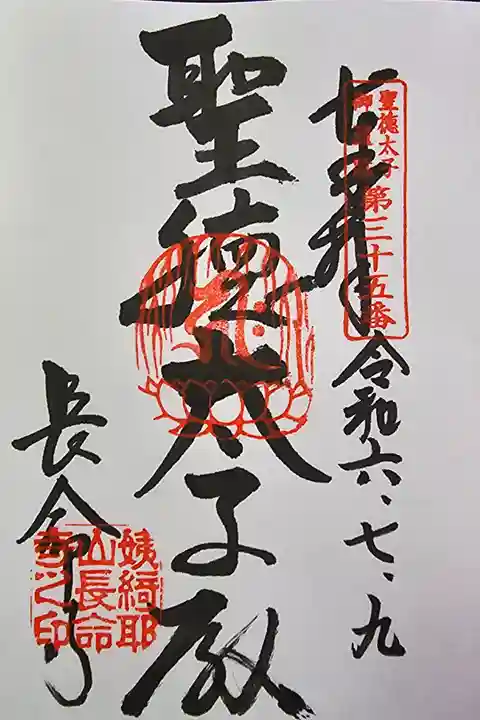 聖徳太子
第三十五番
奉拝
令和六、七、九
聖徳太子殿
長命寺
姨綺耶
山長命
寺之印